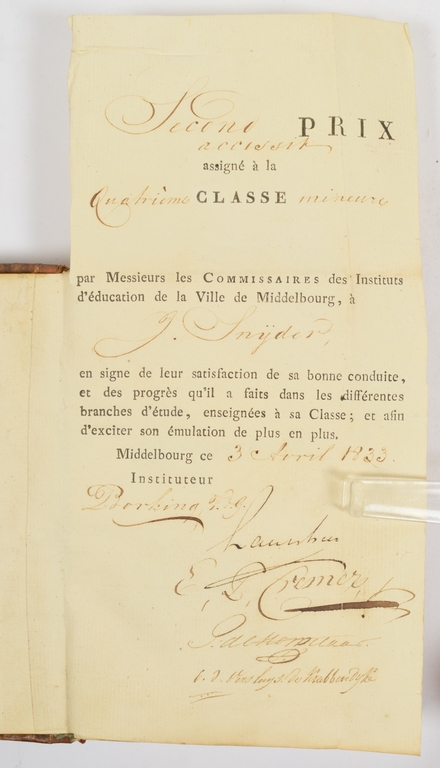 Second PRIX
accessit
assigné à la
Quatrième CLASSE mineure
par Messieurs les COMMISSAIRES des Instituts
d'éducation de la Ville de Middelbourg, à
J. Snÿder,
en signe de leur satisfaction de sa bonne conduite,
et des progrès qu'il a faits dans les différentes
branches d'étude, enseignées à sa Classe; et afin
d'exciter son émulation de plus en plus.
Middelbourg ce 3 Avril 1833.
Instituteur
E, L, Cremer